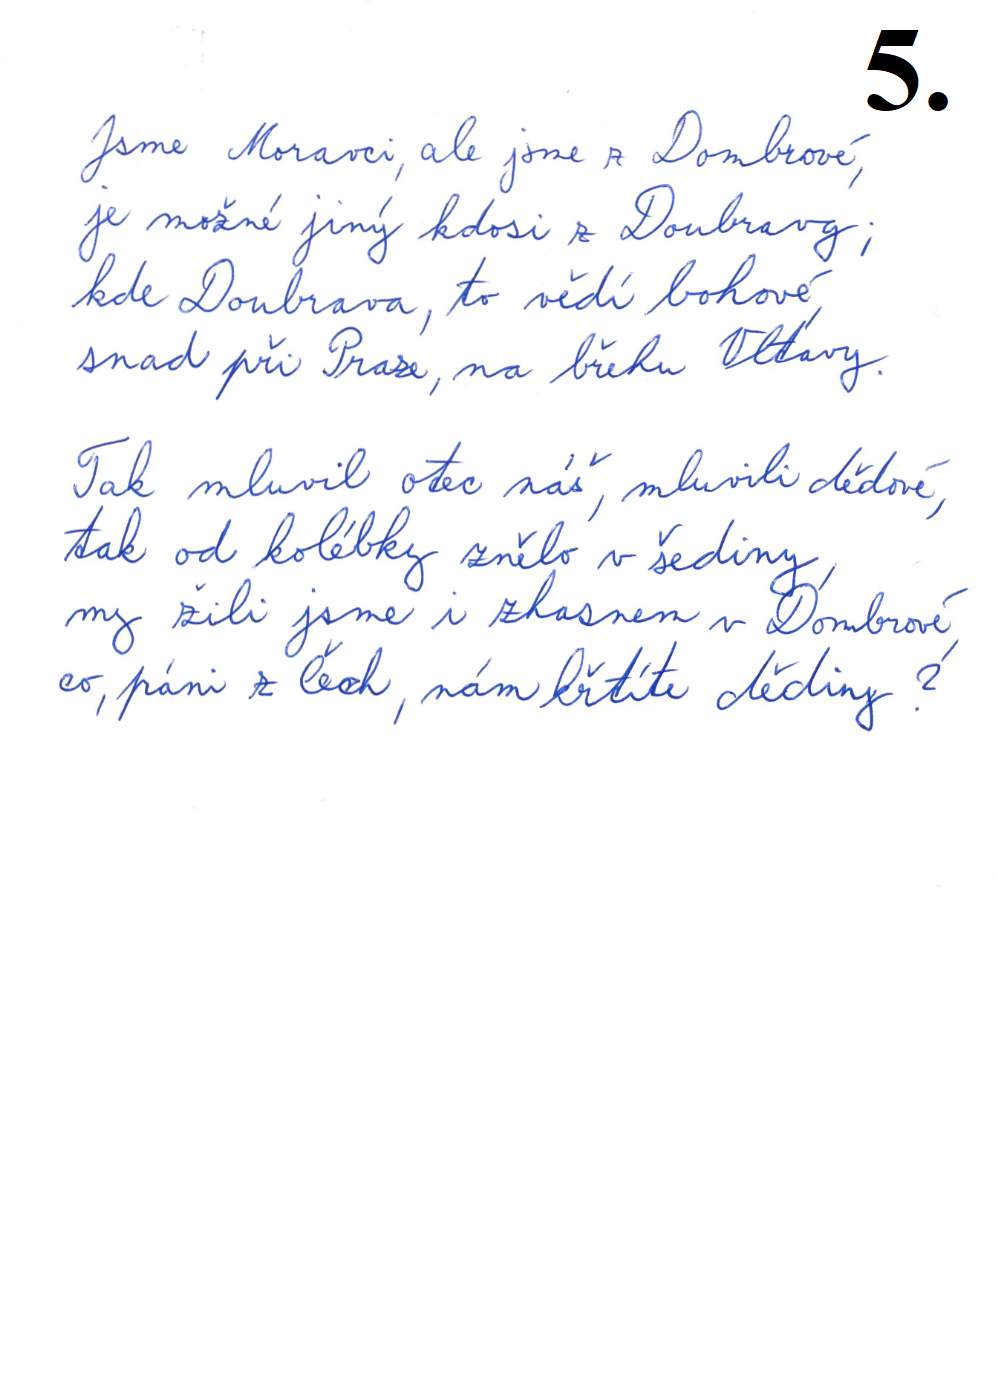 5.
Jsme Moravci, ale jsme z Dombrové,
je možné jiný kdosi z Doubravy;
kde Doubrava, to vědí bohové,
snad při Praze, na břehu Vltavy.
Tak mluvil otec náš, mluvili dědové,
tak od kolébky znělo v šediny,
my žili jsme i zhasnem v Dombrové,
co, páni z Čech, nám křtíte dědiny?